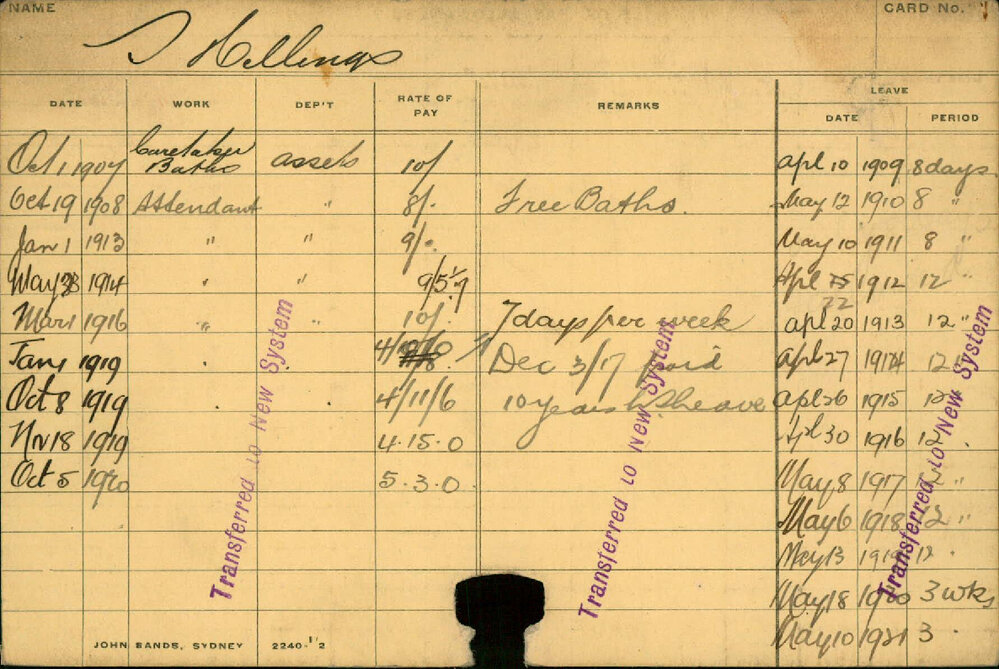 NAME
CARD No.
J Hellings
DATE WORK DEP'T RATE OF PAY REMARKS LEAVE
DATE PERIOD
Oct 1 1907 Caretaker Baths assets 10/ Apl 10 1909 8 days
Oct 19 1908 Attendant " 8/. Free Baths. May 12 1910 8 "
Jan 1 1913 " " 9/. May 10 1911 8 "
May 28 1914 " " 9/5½ Apl 22 1912 12 "
Mar 1 1916 " " 10/. 7 days per week Apl 20 1913 12 "
Jan 1 1919 4/ Dec 3/17 paid Apl 27 1914 12 "
Oct 8 1919 4/11/6 10 years leave Apl 26 1915 12
Nov 18 1919 4.15.0 Apl 30 1916 12 .
Oct 5 1920 5.3.0 May 8 1917 12 "
May 6 1918 12 "
May 13 1919 12 "
May 18 1920 3 wks
May 10 1921 3 .
Transferred to New System
Transferred to New System
Transferred to New System
JOHN SANDS, SYDNEY 2240-1/2